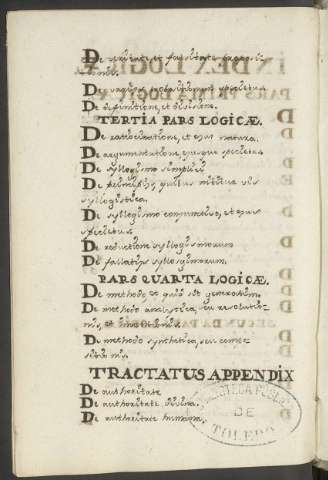 De veritate, et falsitate proposi-
tionis.
De variis propositionum speciebus
De definitione, et divisione.
TERTIA PARS LOGICÆ.
De ratiocinatione, et ejus natura.
De argumentatione, ejusque speciebus
De syllogismo simplici
De principiis, quibus nititur vis
syllogistica.
De syllogismo conjunctivo, et ejus
speciebus
De reductione syllogismorum
De fallaciis syllogismorum.
PARS QUARTA LOGICÆ.
De methodo et quid sit
De methodo analytica, seu resoluti-
De methodo synthetica, seu compo-
TRACTATUS APPENDIX
De authoritate
De authoritate divina.
De authoritate humana.
BIBLIOTECA PUBLICA
DE
TOLEDO